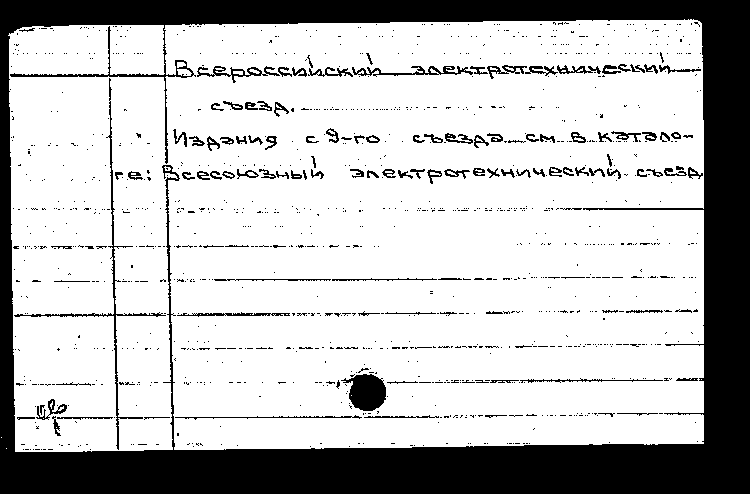 Всероссийский электротехнический
съезд.
Издания с 9-го съезда см. в катало-
ге: Всесоюзный электротехнический съезд